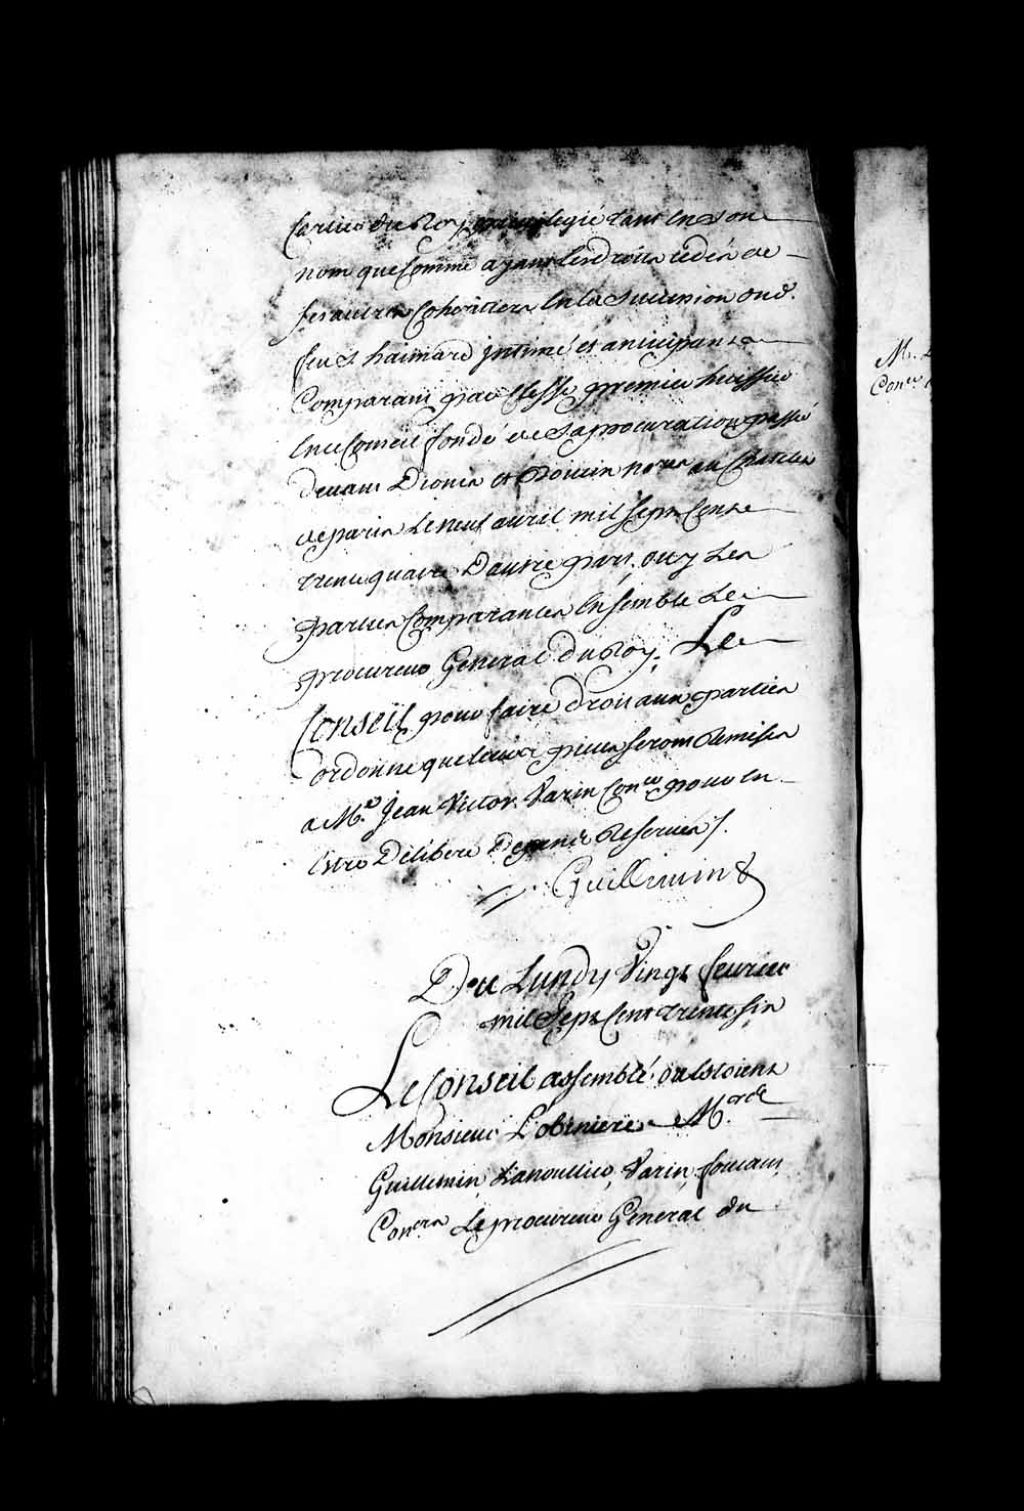 service du Roy privilegié tant en son
nom que comme ayant les droits cedés de
ses autres coheritiers en la succession dud.
feu S. haimard intimé et anticipant
Comparant par Clesse premier huissier
en ce Conseil fondé de sa procuration passé
devant Dionis et Doüin nores au Chatelet
de paris le neuf avril mil sept Cent
trente quatre D'autre part. ouy les
parties Comparantes Ensemble le
procureur General du Roy; Le
Conseil pour faire droit aux parties
ordonne que leurs pieces seront Remises
a Me. Jean Victor Varin Coner pour en
Estre Déliberé Depens Reservés /.
Guillimin
Du Lundy Vingt fevrier
mil Sept Cent trente six
Le Conseil assemblé ou Estoient
Monsieur Lotbiniere Mre de
Guillimin, Lanoullier, Varin, foucault
Coners Le procureur General du
Mr.
Coner